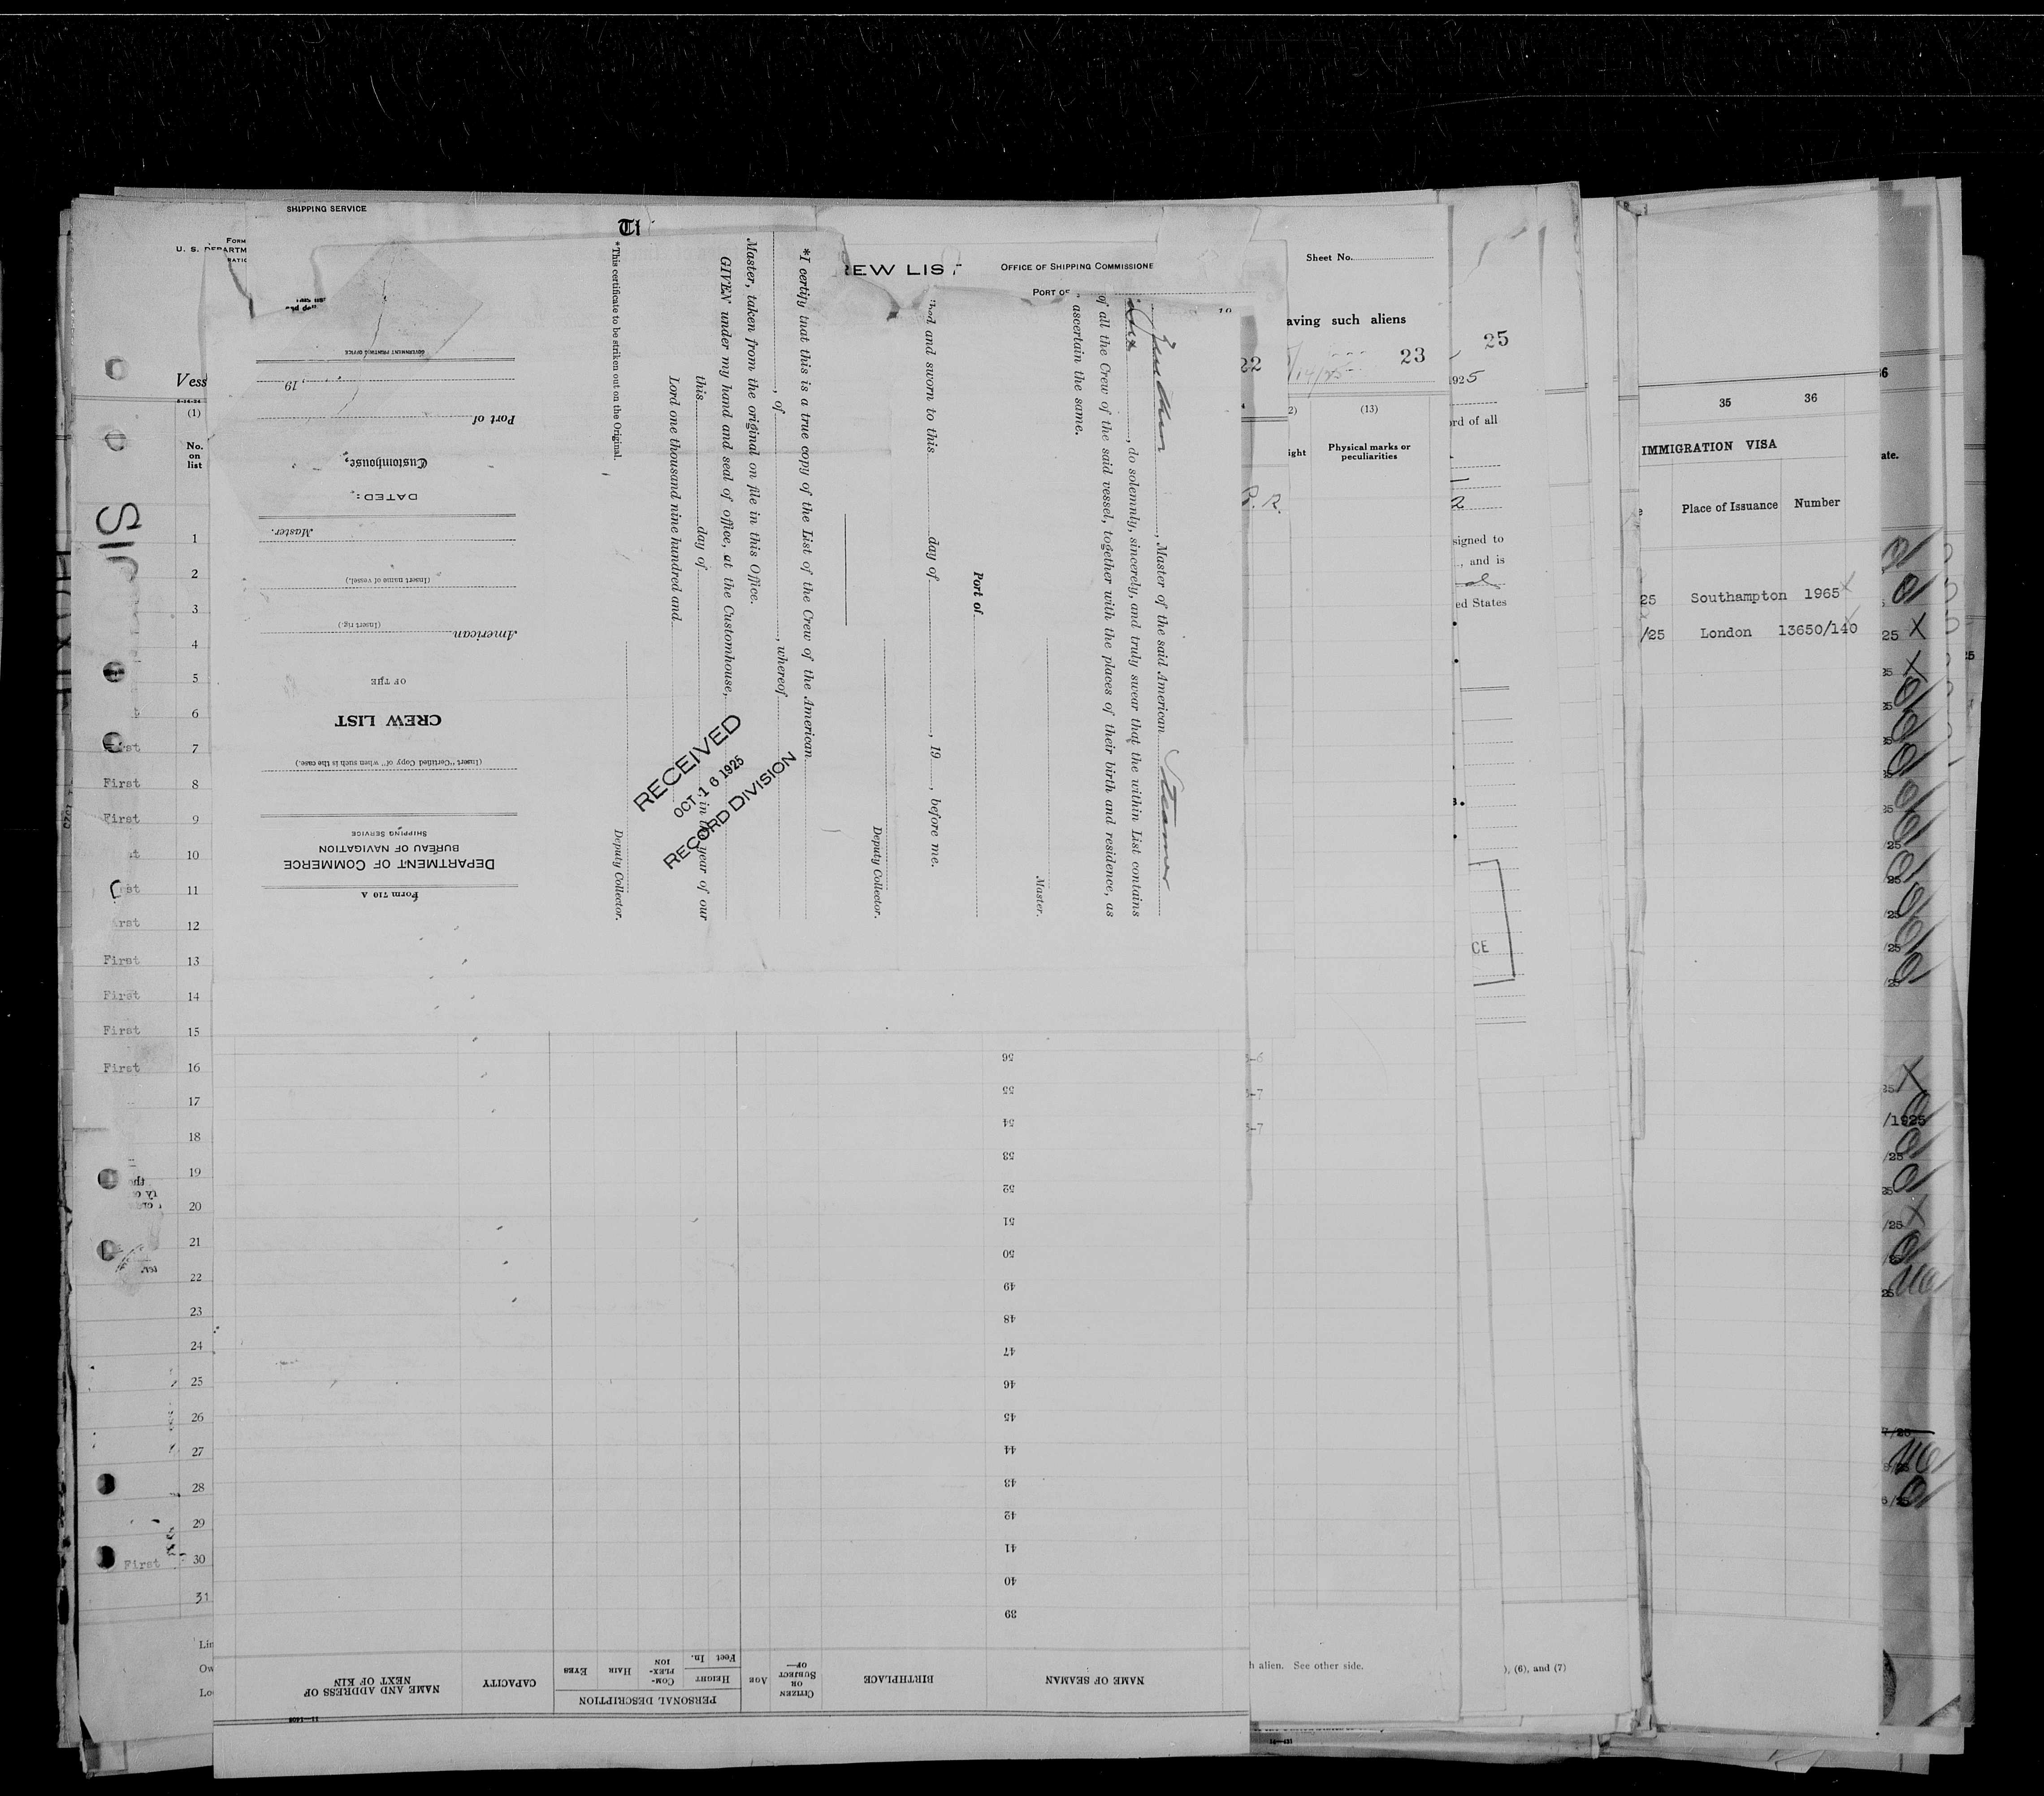 SHIPPING SERVICE
FORM
U. S. DEPARTM
Vess
(1)
No.
on
list
1
2
3
4
5
6
7
First 8
First 9
10
11
12
First 13
First 14
First 15
First 16
17
18
19
20
21
22
23
24
25
26
27
28
29
First 30
31
Lin
Ow
Lo
Form 710 A
DEPARTMENT OF COMMERCE
BUREAU OF NAVIGATION
SHIPPING SERVICE
(Insert "Certified Copy of" when such is the case.)
CREW LIST
OF THE
American
(Insert rig.)
(Insert name of vessel.)
Master.
DATED:
Customhouse,
Port of
, 19
GOVERNMENT PRINTING OFFICE
REW LIST
OFFICE OF SHIPPING COMMISSIONE
PORT OF
, Master of the said American Steamer
, do solemnly, sincerely, and truly swear that the within List contains
of all the Crew of the said vessel, together with the places of their birth and residence, as
ascertain the same.
Master.
Port of
and sworn to this day of , 19 , before me.
Deputy Collector.
*I certify that this is a true copy of the List of the Crew of the American
, of , whereof
Master, taken from the original on file in this Office.
GIVEN under my hand and seal of office, at the Customhouse,
this day of , in the year of our
Lord one thousand nine hundred and
Deputy Collector.
*This certificate to be striken out on the Original.
RECEIVED
OCT 16 1925
RECORD DIVISION
NAME OF SEAMAN
BIRTHPLACE
CITIZEN
OR
SUBJECT
OF—
AGE
PERSONAL DESCRIPTION
HEIGHT
Feet In.
COM-
PLEX-
ION
HAIR
EYES
CAPACITY
NAME AND ADDRESS OF
NEXT OF KIN
39
40
41
42
43
44
45
46
47
48
49
50
51
52
53
54
55
56
Sheet No.
aving such aliens
22
23
25
1925
(13)
ight
Physical marks or
peculiarities
B. R.
ord of all
signed to
, and is
ed States
CE
h alien. See other side.
), (6), and (7)
35 36
IMMIGRATION VISA
Place of Issuance Number
25 Southampton 1965
/25 London 13650/140
ate.
/1925